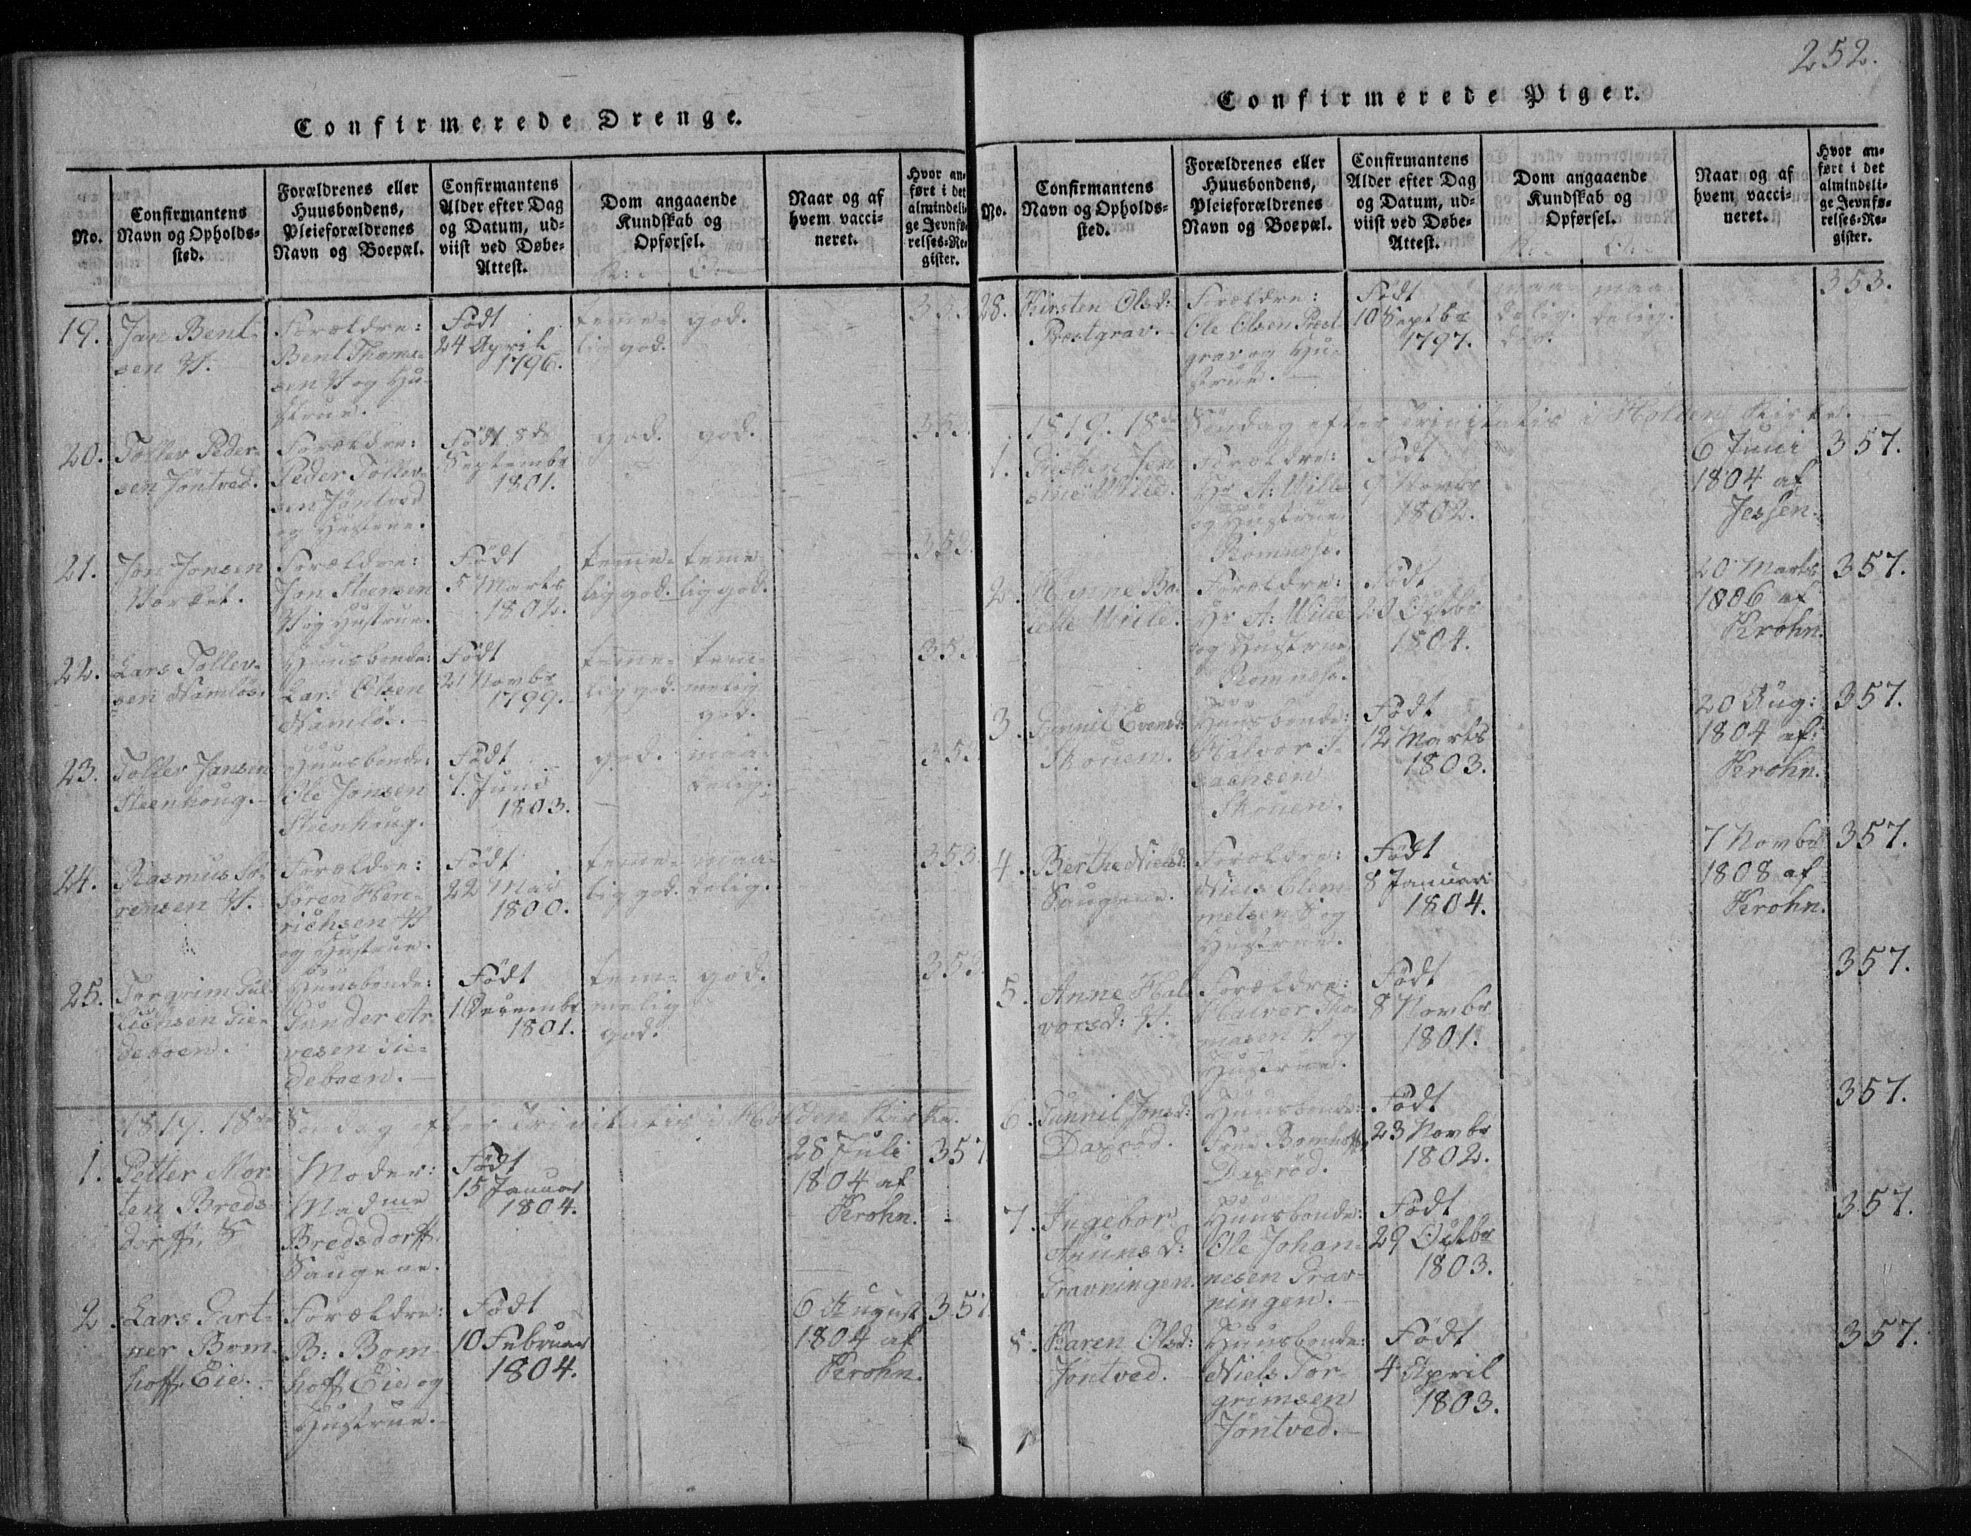 252.
Confirmerede Drenge.
No.
Confirmantens
Navn og Opholds-
sted.
Forældrenes eller
Huusbondens,
Pleieforældrenes
Navn og Boepæl.
Confirmantens
Alder efter Dag
og Datum, ud-
viist ved Døbe-
Attest.
Dom angaaende
Kundskab og
Opførsel.
Naar og af
hvem vacci-
neret.
Hvor an-
ført i det
almindeli-
ge Jevnfø-
relses-Re-
gister.
19.
Jan Bent-
sen
Forældre:
Bent Thom-
sen og Hu-
strue.
Født
24 April
1796.
teme-
lig god.
god.
353
20.
Tollev Peder-
sen Jöntved.
Forældre:
Peder Tollev-
sen Jöntved
og Hustrue.
Født 8de
Septembr
1801.
god.
god.
353
21.
Jon Jonsen
Forældre:
Jon Steensen
og Hustrue.
Født
5 Marts
1802.
teme-
lig god.
teme-
lig god.
353
22.
Lars Tollev-
sen Namlös.
Huusbonde:
Lars Olsen
Namlös.
Født
21 Novbr
1799.
teme-
lig god.
tem-
melig
god.
353
23.
Tollev Jansen
Steenhoug.
Huusbonde:
Ole Jonsen
Steenhoug.
Født
7. Juni
1803.
god.
maa-
delig.
353
24.
Rasmus Sö-
rensen
Forældre:
Sören Hen-
richsen
og Hustrue.
Født
22 Mai
1800.
teme-
lig god.
maa-
delig.
353
25.
Torgrim Gul-
lichsen Lie-
deboen.
Huusbonde:
Gunder Ar-
vesen Lie-
deboen.
Født
1 Decembr
1801.
tem-
melig
god.
god.
353
1819. 18de Søndag efter Trinitatis i Holden Kirke.
1.
Petter Mor-
ten Breds-
dorff, S.
Moder:
Madme
Bredsdorff,
Saugene.
Født
15 Januar
1804.
28 Juli
1804 af
Krohn.
357
2.
Lars Gart-
ner Bom-
hoff Eie.
Forældre:
B: Bom-
hoff Eie og
Hustrue.
Født
10 Februar
1804.
6 August
1804 af
Krohn.
357
Confirmerede Piger.
No.
Confirmantens
Navn og Opholds-
sted.
Forældrenes eller
Huusbondens,
Pleieforældrenes
Navn og Boepæl.
Confirmantens
Alder efter Dag
og Datum, ud-
viist ved Døbe-
Attest.
Dom angaaende
Kundskab og
Opførsel.
Naar og af
hvem vacci-
neret.
Hvor an-
ført i det
almindeli-
ge Jevnfø-
relses-Re-
gister.
28.
Kirsten Olsd:
Prestgrav.
Forældre:
Ole Olsen Prest-
grav og Hu-
strue.
Født
10 Septbr
1797.
maa-
delig.
maa-
delig.
353.
1819. 18de Søndag efter Trinitatis i Holden Kirke.
1.
Wille.
Forældre:
Hr A: Wille
og Hustrue
Romnes.
Født
9 Novbr
1802.
6 Juni
1804 af
Jessen.
357.
2.
Hanne Bo-
lette Wille.
Forældre:
Hr A: Wille
og Hustrue
Romnes.
Født
1804.
20 Marts
1806 af
Krohn.
357.
3.
Gunnil Evensd:
Skouen.
Huusbonde:
Halvor I-
sachsen
Skouen.
Født
12 Marts
1803.
20 Aug:
1804 af
Krohn.
357.
4.
Berthe Nielsd:
Saugene.
Forældre:
Niels Clem-
metsen S. og
Hustrue.
Født
8 Januari
1804.
7 Novbr
1808 af
Krohn.
357.
5.
Anne Hal-
vorsd:
Forældre:
Halvor Tho-
masen og
Hustrue.
Født
8 Novbr
1801.
357.
6.
Gunnil Jonsd:
Daxröd.
Huusbonde:
Frue Bomhoff
Daxröd.
Født
23 Novbr
1802.
357.
7.
Ingebor
Aaunsd:
Gravningen.
Huusbonde:
Ole Johan-
nesen Grav-
ningen.
Født
29 Octbr
1803.
357.
8.
Karen Olsd:
Jöntved.
Huusbonde:
Niels Tor-
grimsen
Jöntved.
Født
4 April
1803.
357.